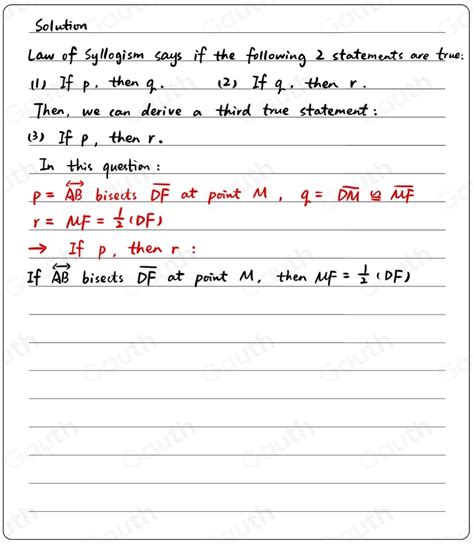 Solution
Law of Syllogism says if the following 2 statements are true:
(1) If p, then q. (2) If q, then r.
Then, we can derive a third true statement:
(3) If p, then r.
In this question:
p = \overleftrightarrow{AB} bisects \overline{DF} at point M, q = \overline{DM} ≌ \overline{MF}
r = MF = 1/2 (DF)
→ If p, then r:
If \overleftrightarrow{AB} bisects \overline{DF} at point M, then MF = 1/2 (DF)